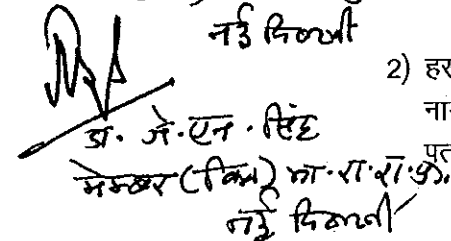 नई दिल्ली
2) हस
डा. जे. एन. सिंह
ना
मेम्बर (वित्त) भा. रा. रा. प्रा.
पत
नई दिल्ली